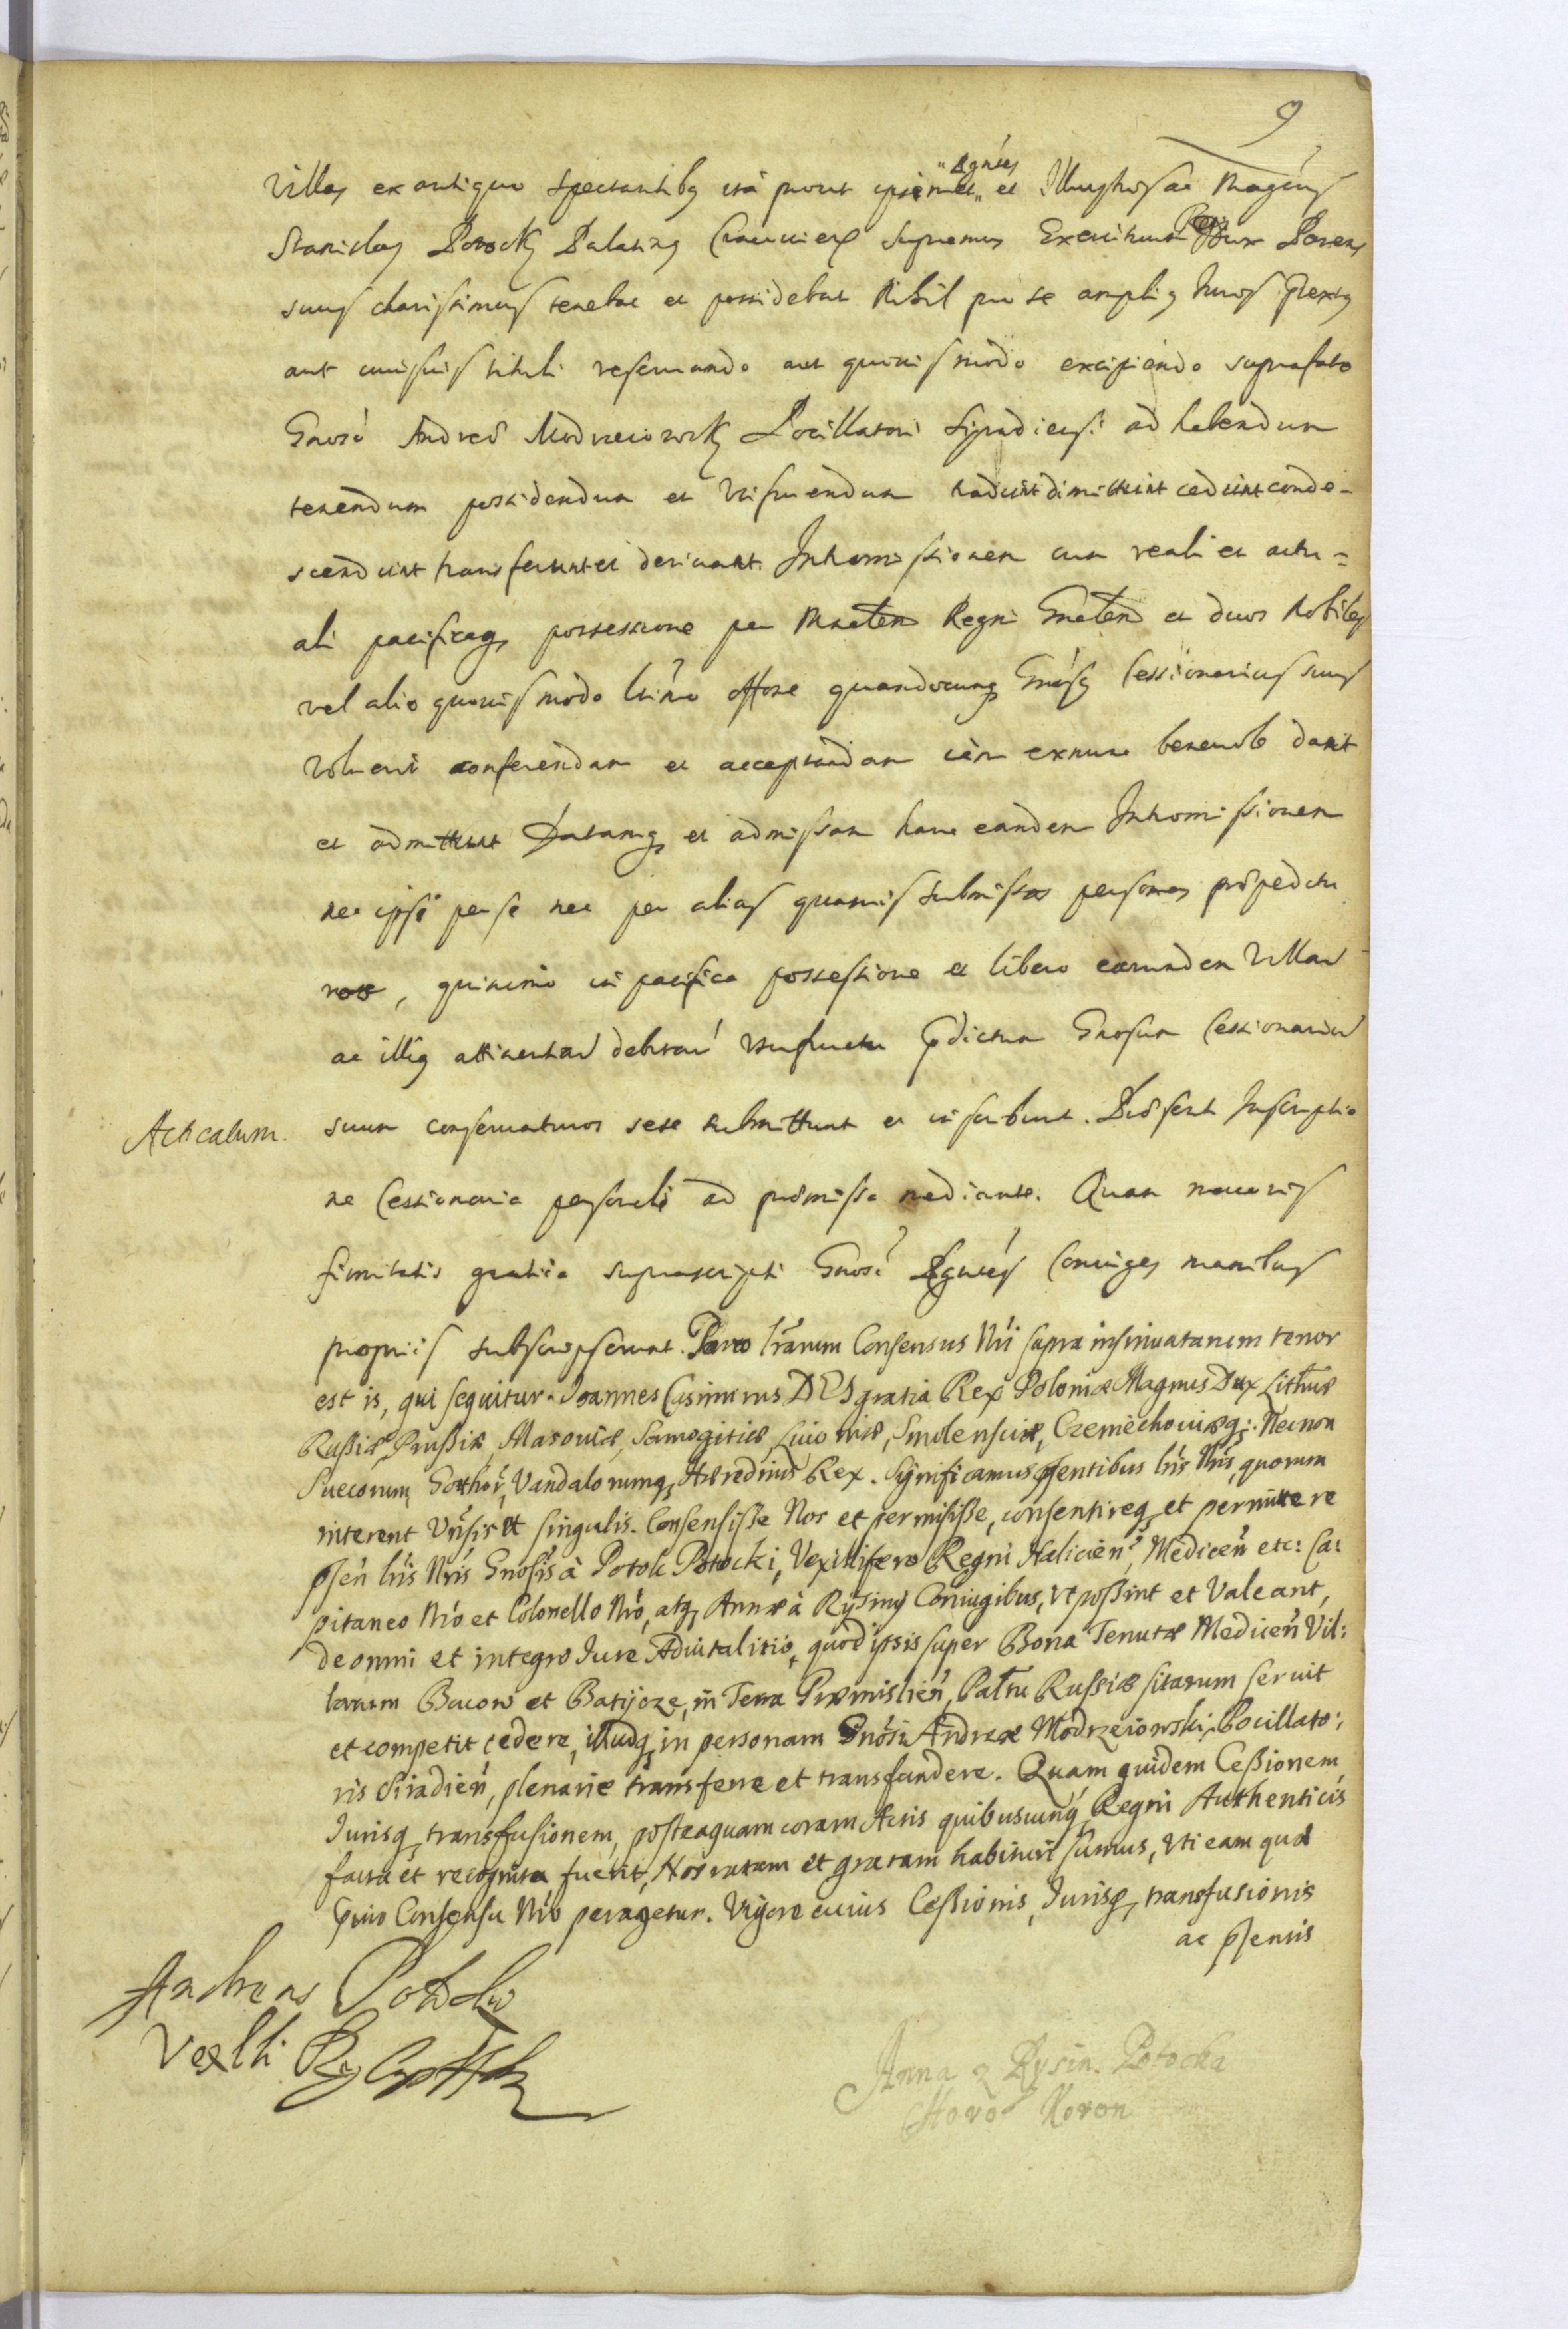 9
villas ex antiquo spectantibq ita prout ipsemet „Rgntes„ et Illustris ac Magcus
Stanislaus Potocky Palatinus Cracovien Supremus Exercituum Regni Dux Parens
suus charissimus tenebat et possidebat Nihil pro se amplius Juris
aut cuiusuis tituli reseruando aut quouis modo excipiendo suprafato
Gnoso Andreæ Modrzeiowsky Pocillatori Siradiensi ad habendum
tenendum possidendum et Utifruendum tradunt dimittunt cedunt conde-
scendunt transferunt et deriuant. Intromissionem cum reali et actu-
ali pacificaq possessione per Mnrlem Regni Gnalem et duos Nobiles
vel alio quouis modo ltimo offone quandocunq Gnosus Cessionarius suus
voluerit conferendam et acceptandam iam exnunc beneuole dant
et admittunt Datamq et admissam hanc eandem Intromissionem
nec ipsi per se nec per alias quasuis submissas personas præpedituros
, quinimo in pacifica possessione et libero earundem Villarum
ac illis attinentiarum debitarum usufructu prædictum Gnosum Cessionarium
Acticatum.
suum conseruaturos sese submittunt et inscribunt. Præsenti Inscriptio
ne Cessionaria personali ad præmissa mediante. Quam maioris
firmitatis gratia suprascripti Gnosi Rgntes Coniuges manibus
propriis subscripserunt. Porro lrarum Consensus Nri supra insinuatarum tenor
est is, qui sequitur. Joannes Casimirus DEI gratia Rex Poloniæ Magnus Dux Lithuæ
Russiæ Prussiæ, Masouiæ, Samogitiæ Liuoniæ, Smolensciæ, Czerniechouiæq;. Necnon
Suecorum, Gotthor, Vandalorumq, Hæreditrius Rex. Significamus pntibus lris Nris, quorum
interent Unsis et singulis. Consensisse Nos et permisisse, consentireq et permittere
psen lris Nris Gnosis à Potok Potocki, Vexillifero Regni Halicien, Medicen etc: Ca:
pitaneo Nro et Colonello Nro, atq Annæ à Rysiny Coniugibus, ut possint et Valeant,
de omni et integro Jure Aduitalitio, quod ipsis super Bona Tenutæ Medicen Vil:
larum Bucow et Batijcze, in Terra Præmislien, Paltu Russiæ sitarum seruit
et competit cedere, illudq in personam Gnosi Andreæ Modrzeiowski, Pocillato:
ris Siradien, plenarie transferre et transfundere. Quam quidem Cessionem
Jurisq transfusionem, posteaquam coram Actis quibuscunq Regni Authenticis
facta et recognita fuerit, Nos ratam et gratam habituri sumus, uti eam quæ
præuio Consensu Nro peragetur. Vigore cuius Cessionis, Jurisq transfusionis
ac psentis
Andreas Potocki
Vexlli
Anna z Rysin. Potocka
Choro Koron